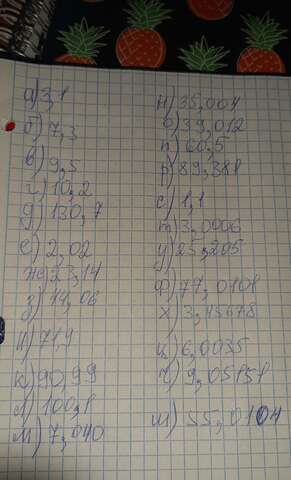 а) 3,1
б) 7,3
в) 9,5
г) 10,2
д) 130,7
е) 2,02
ж) 23,14
з) 14,06
и) 71,9
к) 90,99
л) 100,1
м) 7,040
н) 35,004
о) 39,012
п) 60,5
р) 89,388
с) 1,1
т) 3,0006
у) 25,205
ф) 77,0101
х) 3,45678
ц) 6,0035
ч) 9,05151
ш) 55,0104